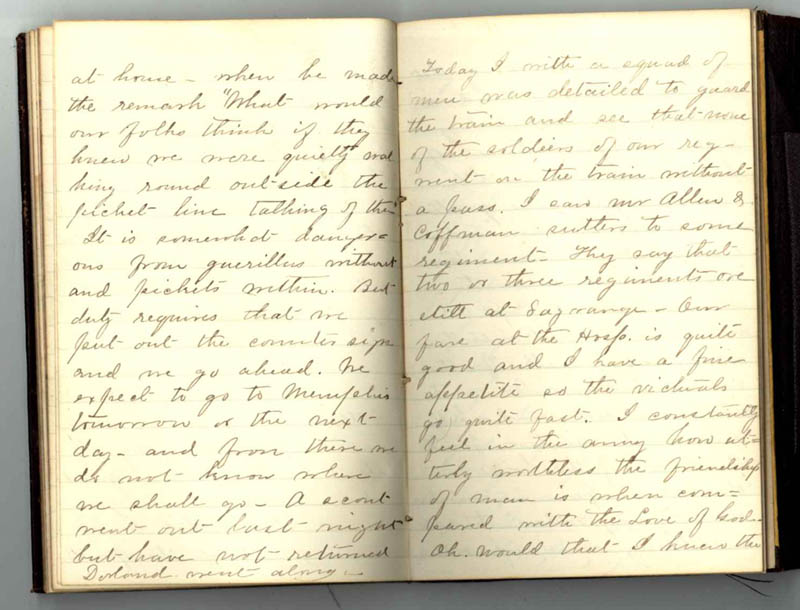 at home - when he made
the remark "What would
our folks think if they
knew we were quietly wal
king round outside the
picket line talking of the
It is somewhat danger=
ous from guerillas without
and pickets within. But
duty requires that we
put out the counter sign
and we go ahead. We
expect to go to Memphis
tomorrow or the next
day - and from there we
do not know where
we shall go - A scout
went out last night
but have not returned
Dorland went along -
Today I with a squad of
men was detailed to guard
the train and see that none
of the soldiers of our reg-
ment on the train without
a pass. I saw mr Allen &
Coffman sutlers to some
regiment - They say that
two or three regiments are
still at Lagrange - Our
fare at the Hosp. is quite
good and I have a fine
appetite so the victuals
go quite fast. I constantly
feel in the army how ut=
terly worthless the friendship
of man is when com=
pared with the Love of God -
Oh. would that I knew the